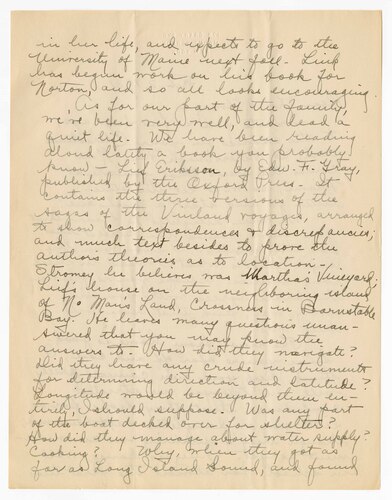 in her life, and expects to go to the
University of Maine next fall. Link
has begun work on his book for
Norton, and so all looks encouraging.
As for our part of the family,
we've been very well, and lead a
quiet life. We have been reading
aloud lately a book you probably
know - Leif Eriksson, by Edw. F. Gray,
published by the Oxford Press. It
contains the three versions of the
sagas of the Vinland voyages, arranged
to show correspondences & discrepancies;
and much text besides to prove the
authors theories as to location.
Stromey he believes was Martha's Vineyard;
Leif's house on the neighboring island
of No Man's Land, Crossness in Barnstable
Bay. He leaves many questions unan-
swered that you may know the
answers to. How did they navigate?
Did they have any crude instruments
for determining direction and latitude?
Longitude would be beyond them en-
tirely, I should suppose. Was any part
of the boat decked over for shelter?
How did they manage about water supply?
Cooking? Why, when they got as
far as Long Island Sound, and found